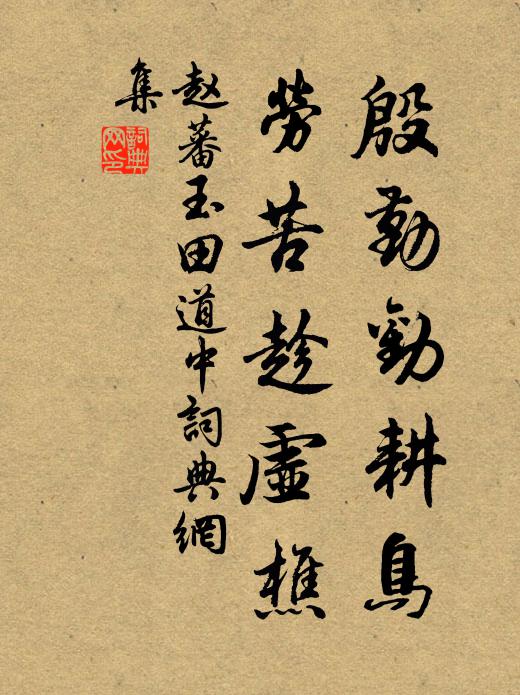 殷勤勸耕鳥
勞苦趁虛樵
赵蕃玉田道中詞典網
集
詞典網印